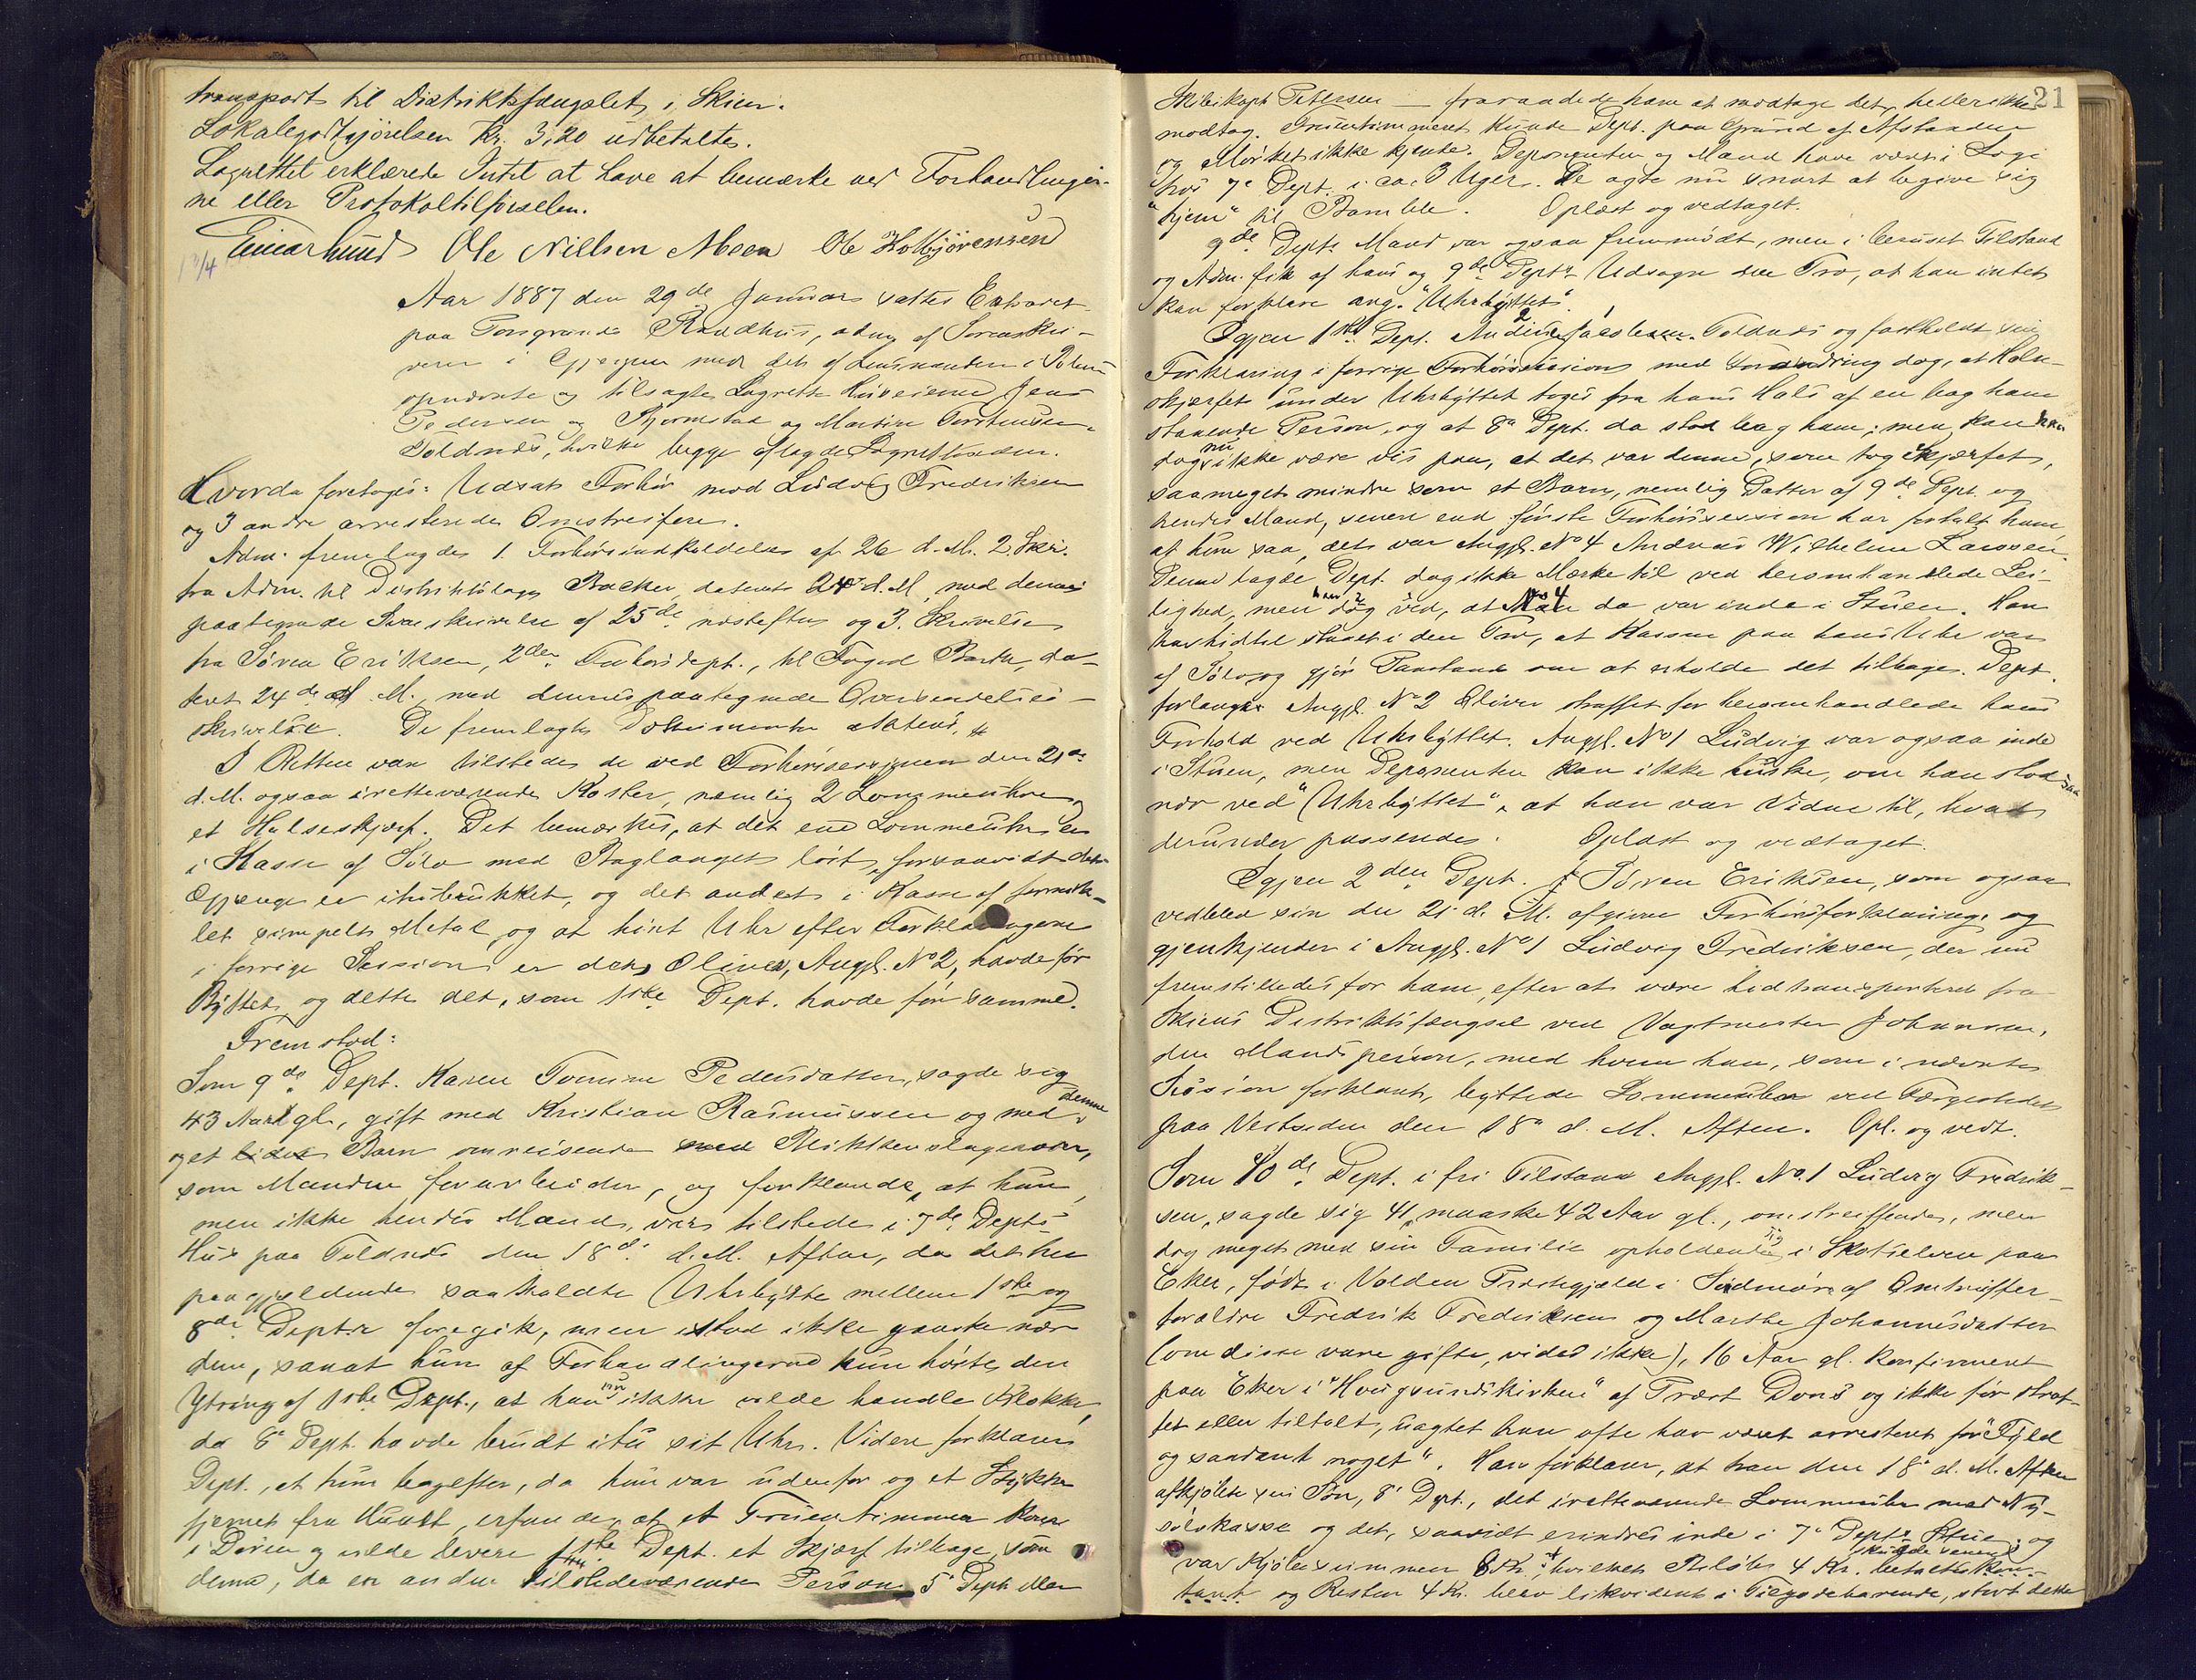 transport til Distriktsfængslet i Skien.
Lokalegodtgjørelsen Kr. 3,20 udbetaltes.
Lagrettet erklærede Intet at have at bemærke ved Forhandlinger-
ne eller Protokoltilførselen.
Einar Lund Ole Nillsen Ole Kolbjørensen
Aar 1887 den 29de Januar sattes Extraret
paa Porsgrunds Raadhus, adm. af Sorenskri-
veren i Gjerpen med det af Lensmanden i
opnævnte og tilsagte Lagrette Huseierne Jens
Pedersen Bjørnstad og Martin Torstensen
Toldnæs, hvilke begge aflagde Lagrettseden.
Hvorda foretoges: Udsat Forhør mod Ludvig Fredriksen
og 3 andre arresterede Omstreifere.
Adm. fremlagde 1. Forhørsindkaldelse af 26 d. M. 2. Skr.
fra Adm. til Distriktslæge Backer dateret 24 d. M. med dennes
paategnede Svarskrivelse af 25de næstefter og 3. Skrivelse
fra Søren Eriksen, 2den Forhørsdept., til Foged Barth, da-
teret 24de d. M., med dennes paategnede Oversendelses-
skrivelse. De fremlagte Dokumenter aktens.
I Retten var tilstede de ved Forhørssessionen den 21de
d. M. ogsaa iretteværende Koster, nemlig 2 Lommeuhre og
et Halsskjærf. Det bemærkes, at det ene Lommeuhr er
i Kasse af Sølv med Baglaaget løst, forsaavidt dets
Gjænge er itubrukket, og det andet i Kasse af fornik-
let simpelt Metal og at hint Uhr efter Forklaringerne
i forrige Session er det, Oliver, Angjl. No 2, havde før
Byttet, og dette det, som 1ste Dept. havde før samme.
Fremstod:
Som 9de Dept. Karen Tomine Pedersdatter, sagde sig
43 Aar gl., gift med Kristian Rasmussen og med denne
og et Barn omreisende med Blikkenslagervarer,
som Manden forarbeider, og forklarede, at hun,
men ikke hendes Mand, var tilstede i 7de Depts
Hus paa Toldnæs den 18de d. M. Aften, da det her
paagjældende saakaldte Uhrbytte mellem 1ste og
8de Deptr foregik, men stod ikke ganske nær
dem, saaat hun af Forhandlingerne kun hørte den
Ytring af 1ste Dept., at han nu ikke vilde handle Klokke,
da 8de Dept. havde brudt itu sit Uhr. Videre forklares
Dept., at hun bagefter, da hun var udenfor og et Stykke
fjernet fra Huset, erfarede, at et Fruentimmer kom
i Døren og vilde levere 1ste Dept. et Skjærf tilbage, som
denne, da en anden tilstedeværende Person, 5te Dept. eller
21
Skibskapt. Petersen — fraraadede ham at modtage det, heller ikke
modtog. Fruentimmeret kunde Dept. paa Grund af Afstanden
og Mørket ikke kjende. Deponenten og Mand have været i Logi
hos 7de Dept. i ca. 3 Uger. De agte nu snart at begive sig
"hjem" til Bamble. Oplæst og vedtaget.
9de Depts Mand var ogsaa fremmødt, men i beruset Tilstand
og Adm. fik af hans og 9de Depts Udsagn den Tro, at han intet
kan forklare ang. "Uhrbyttet".
Igjen 1ste Dept. Jacobsen Toldnæs og fastholdt sin
Forklaring i forrige Forhørssession med Forandring dog, at Hals-
skjærfet under Uhrbyttet toges fra hans Hals af en bag ham
staaende Person, og at 8de Dept. da stod bag ham; men kan han
dog nu ikke være vis paa, at det var denne, som tog Skjærfet,
saameget mindre som et Barn, nemlig Datter af 9de Dept. og
hendes Mand, senere end første Forhørssession har fortalt ham,
at hun saa, det var Angjl. No 4 Andreas Wilhelm Larssen.
Denne lagde Dept. dog ikke Mærke til ved heromhandlede Lei-
lighed, men han dog ved, at No 4 da var inde i Stuen. Han
har hidtil staaet i den Tro, at Kassen paa hans Uhr var
af Sølv og gjør Paastand om at erholde det tilbage. Dept.
forlanger Angjl. No 2 Oliver straffet for heromhandlede hans
Forhold ved Uhrbyttet. Angjl. No 1 Ludvig var ogsaa inde
i Stuen, men Deponenten kan ikke huske, om han stod saa
nær ved "Uhrbyttet", at han var Vidne til, hvad
derunder passerede. Oplæst og vedtaget.
Igjen 2den Dept. Søren Eriksen, som ogsaa
vedblev sin den 21 d. M. afgivne Forhørsforklaring og
gjenkjender i Angjl. No 1 Ludvig Fredriksen, der nu
fremstilledes for ham, efter at være hidtransporteret fra
Skiens Distriktsfængsel ved Vagtmester Johnsen,
den Mandsperson, med hvem han, som i nævnte
Session forklaret, byttede Lommeuhr ved Færgestedet
paa Vestsiden den 18de d. M. Aften. Opl. og vedt.
Som 10de Dept. i fri Tilstand Angjl. No. 1 Ludvig Fredrik-
sen, sagde sig 41, maaske 42 Aar gl., omstreiffende, men
dog meget med sin Familie opholdende sig i Skotselven paa
Eker, født i Volden Præstegjæld i Søndmøre af Omstreiffer-
forældre Fredrik Fredriksen og Marthe Johannesdatter
(om disse vare gifte, vides ikke), 16 Aar gl. konfirmeret
paa Eker i "Hougsundskirken" af Præst Dons og ikke før straf-
fet eller tiltalt, uagtet han ofte har været arresteret for "Fyld
og saadant noget". Han forklarer, at han den 18de d. M. Aften
afkjøbte sin Søn, 8de Dept., det iretteværende Lommeuhr med Ny-
sølvkasse og det, saavidt erindres inde i 7de Depts Stue, og
var Kjøbesummen 8 Kr., hvilket Beløb 4 Kr. skulde senere betales kon-
tant og Resten 4 Kr. blev likvideret i Tilgodehavende, stort dette